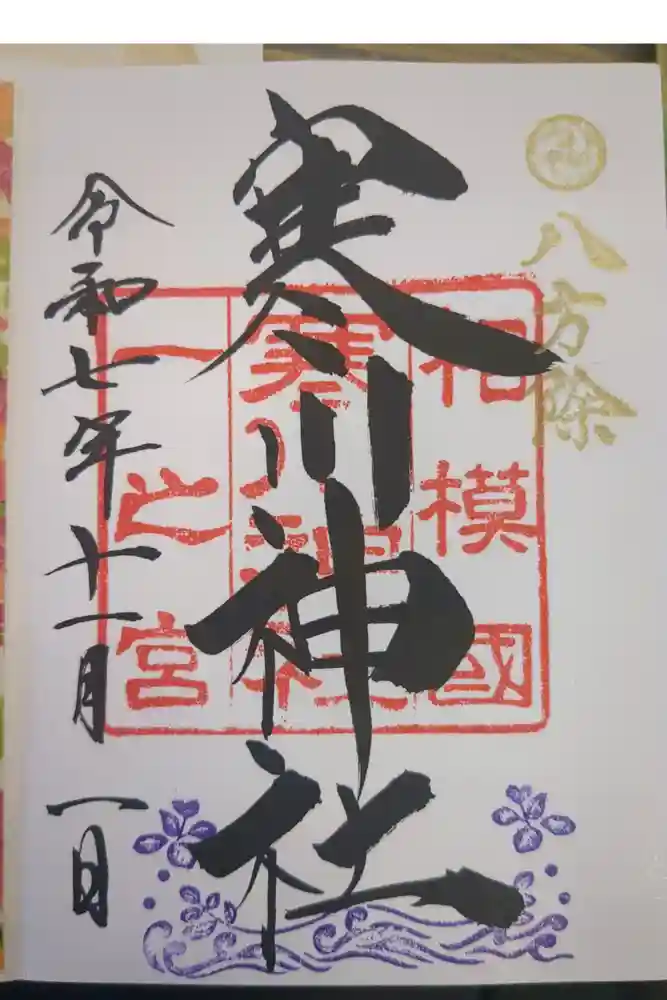 八方除
相模國
寒川神社
一之宮
寒川神社
令和七年十一月一日